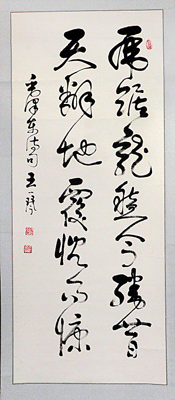 虎踞龙盘今胜昔
天翻地覆慨而慷
毛泽东诗句 王